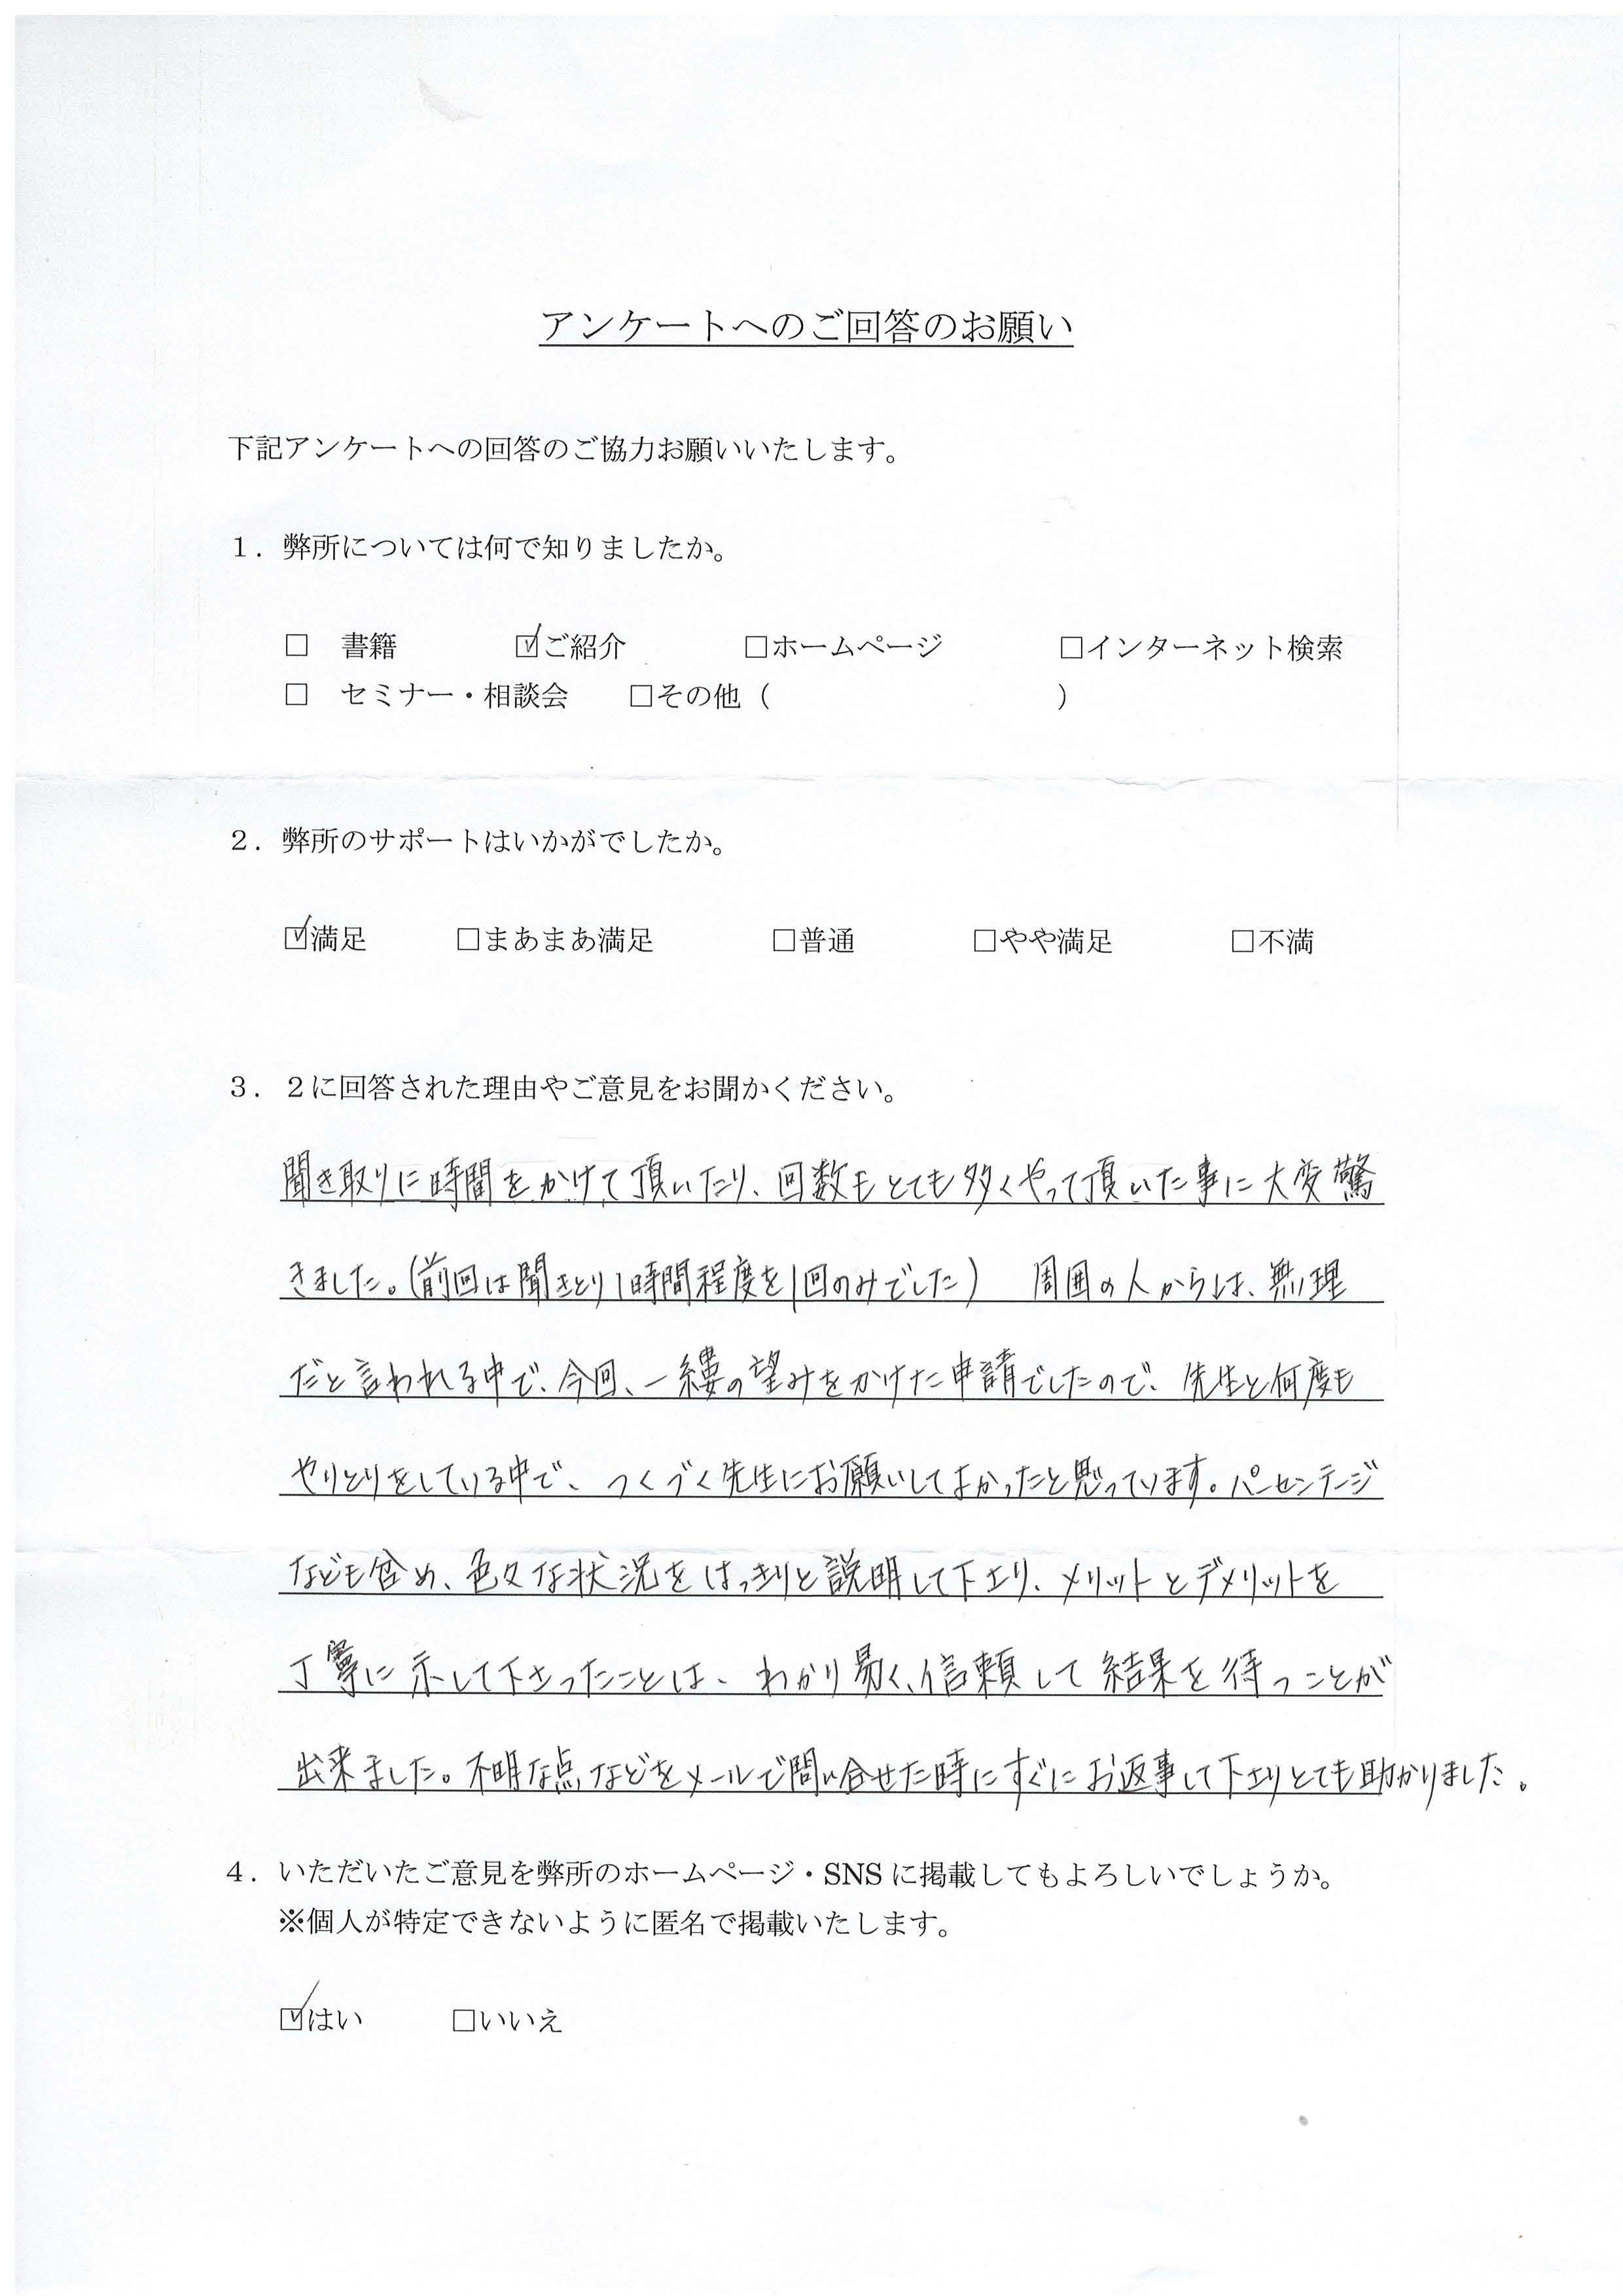 アンケートへのご回答のお願い
下記アンケートへの回答のご協力お願いいたします。
１．弊所については何で知りましたか。
□　書籍　☑ご紹介　□ホームページ　□インターネット検索
□　セミナー・相談会　□その他（　　　　　　　　　　）
２．弊所のサポートはいかがでしたか。
☑満足　□まあまあ満足　□普通　□やや満足　□不満
３．２に回答された理由やご意見をお聞かください。
聞き取りに時間をかけて頂いたり、回数もとても多くやって頂いた事に大変驚
きました。(前回は聞きとり1時間程度を1回のみでした)　周囲の人からは、無理
だと言われる中で、今回、一縷の望みをかけた申請でしたので、先生と何度も
やりとりをしている中で、つくづく先生にお願いしてよかったと思っています。パーセンテージ
なども含め、色々な状況をはっきりと説明して下さり、メリットとデメリットを
丁寧に示して下さったことは、わかり易く、信頼して結果を待つことが
出来ました。不明な点などをメールで問い合せた時にすぐにお返事して下さりとても助かりました。
４．いただいたご意見を弊所のホームページ・SNSに掲載してもよろしいでしょうか。
※個人が特定できないように匿名で掲載いたします。
☑はい　□いいえ